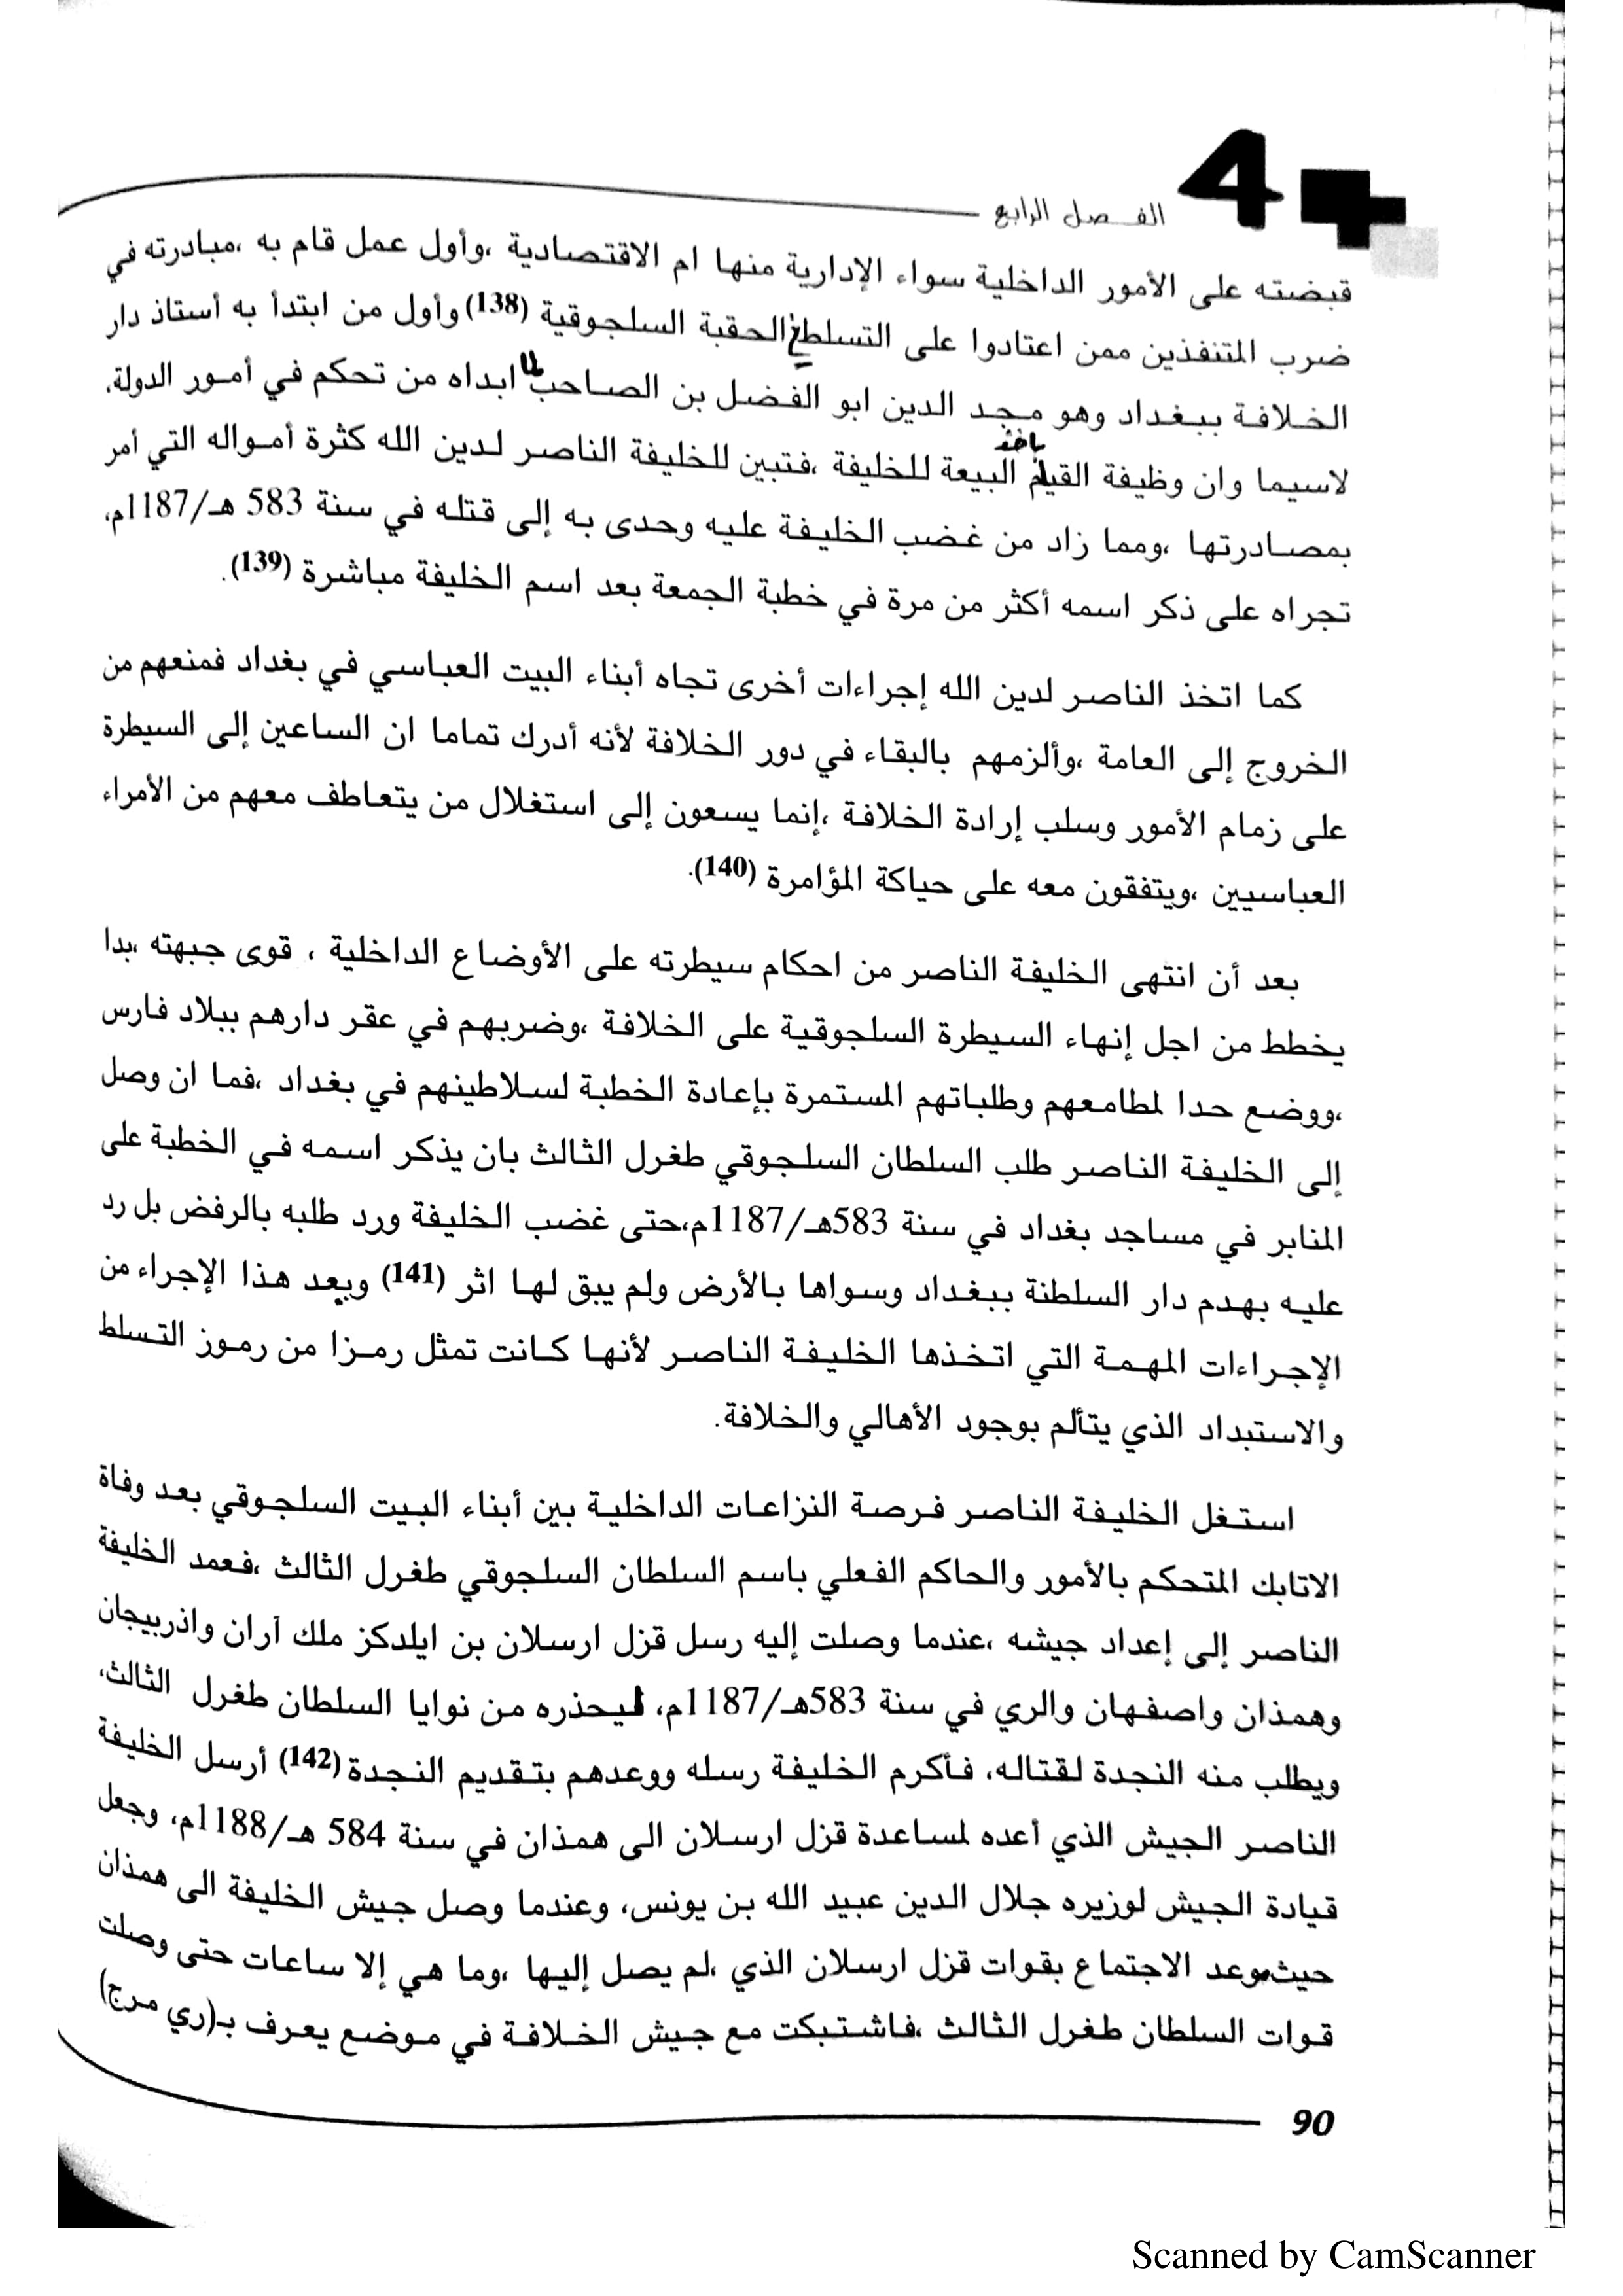 4
الفصل الرابع
قبضته على الأمور الداخلية سواء الإدارية منها ام الاقتصادية ،وأول عمل قام به ،مبادرته في
ضرب المتنفذين ممن اعتادوا على التسلط في الحقبة السلجوقية (138) وأول من ابتدأ به أستاذ دار
الخلافة ببغداد وهو مجد الدين ابو الفضل بن الصاحب لما ابداه من تحكم في أمور الدولة،
لاسيما وان وظيفة القيام باخذ البيعة للخليفة ،فتبين للخليفة الناصر لدين الله كثرة أمواله التي أمر
بمصادرتها ،ومما زاد من غضب الخليفة عليه وحدى به إلى قتله في سنة 583 هـ/1187م،
تجراه على ذكر اسمه أكثر من مرة في خطبة الجمعة بعد اسم الخليفة مباشرة (139).
كما اتخذ الناصر لدين الله إجراءات أخرى تجاه أبناء البيت العباسي في بغداد فمنعهم من
الخروج إلى العامة ،وألزمهم بالبقاء في دور الخلافة لأنه أدرك تماما ان الساعين إلى السيطرة
على زمام الأمور وسلب إرادة الخلافة ،إنما يسعون إلى استغلال من يتعاطف معهم من الأمراء
العباسيين ،ويتفقون معه على حياكة المؤامرة (140).
بعد أن انتهى الخليفة الناصر من احكام سيطرته على الأوضاع الداخلية ، قوى جبهته ،بدا
يخطط من اجل إنهاء السيطرة السلجوقية على الخلافة ،وضربهم في عقر دارهم ببلاد فارس
،ووضع حدا لمطامعهم وطلباتهم المستمرة بإعادة الخطبة لسلاطينهم في بغداد ،فما ان وصل
إلى الخليفة الناصر طلب السلطان السلجوقي طغرل الثالث بان يذكر اسمه في الخطبة على
المنابر في مساجد بغداد في سنة 583هـ/1187م،حتى غضب الخليفة ورد طلبه بالرفض بل رد
عليه بهدم دار السلطنة ببغداد وسواها بالأرض ولم يبق لها اثر (141) وبعد هذا الإجراء من
الإجراءات المهمة التي اتخذها الخليفة الناصر لأنها كانت تمثل رمزا من رموز التسلط
والاستبداد الذي يتألم بوجود الأهالي والخلافة.
استغل الخليفة الناصر فرصة النزاعات الداخلية بين أبناء البيت السلجوقي بعد وفاة
الاتابك المتحكم بالأمور والحاكم الفعلي باسم السلطان السلجوقي طغرل الثالث ،فعمد الخليفة
الناصر إلى إعداد جيشه ،عندما وصلت إليه رسل قزل ارسلان بن ايلدكز ملك آران واذربيجان
وهمذان واصفهان والري في سنة 583هـ/1187م، ليحذره من نوايا السلطان طغرل الثالث،
ويطلب منه النجدة لقتاله، فأكرم الخليفة رسله ووعدهم بتقديم النجدة (142) أرسل الخليفة
الناصر الجيش الذي أعده لمساعدة قزل ارسلان الى همذان في سنة 584 هـ/1188م، وجعل
قيادة الجيش لوزيره جلال الدين عبيد الله بن يونس، وعندما وصل جيش الخليفة الى همذان
حيث موعد الاجتماع بقوات قزل ارسلان الذي ،لم يصل إليها ،وما هي إلا ساعات حتى وصلت
قوات السلطان طغرل الثالث ،فاشتبكت مع جيش الخلافة في موضع يعرف بـ(ري مرج)
90
Scanned by CamScanner